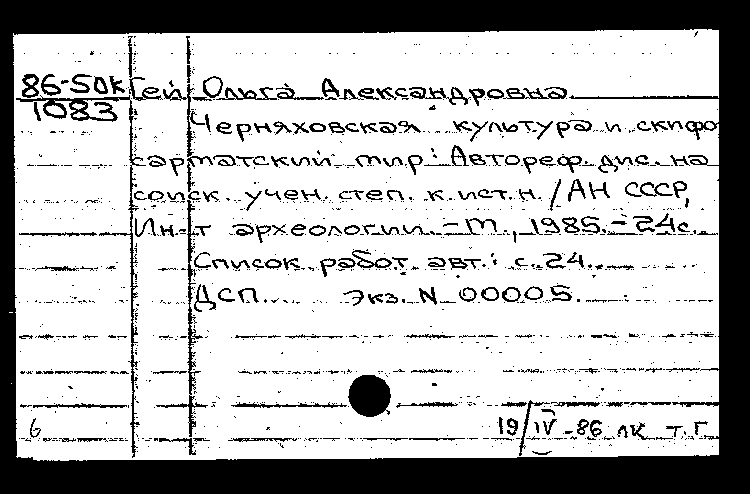 86-5ДК Гей Ольга Александровна
1083
Черняховская культура и скифо
сарматский мир: Автореф. дис. на
соиск. учен. степ. к.ист.н. / АН СССР,
Ин-т археологии. - М., 1985. - 24с.
Список работ авт.: с.24.
ДСП. Экз. N 00005.
6
19/IV-86 лк т.Г